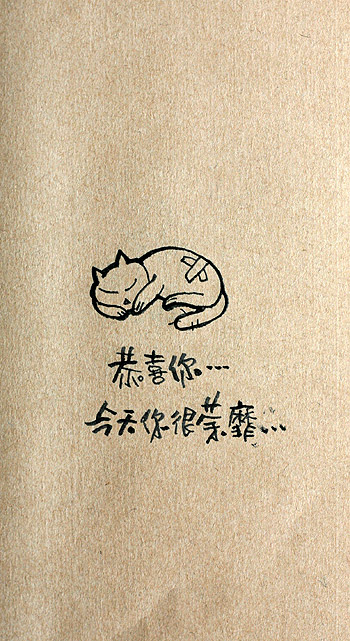 恭喜你…
今天你很荼靡…